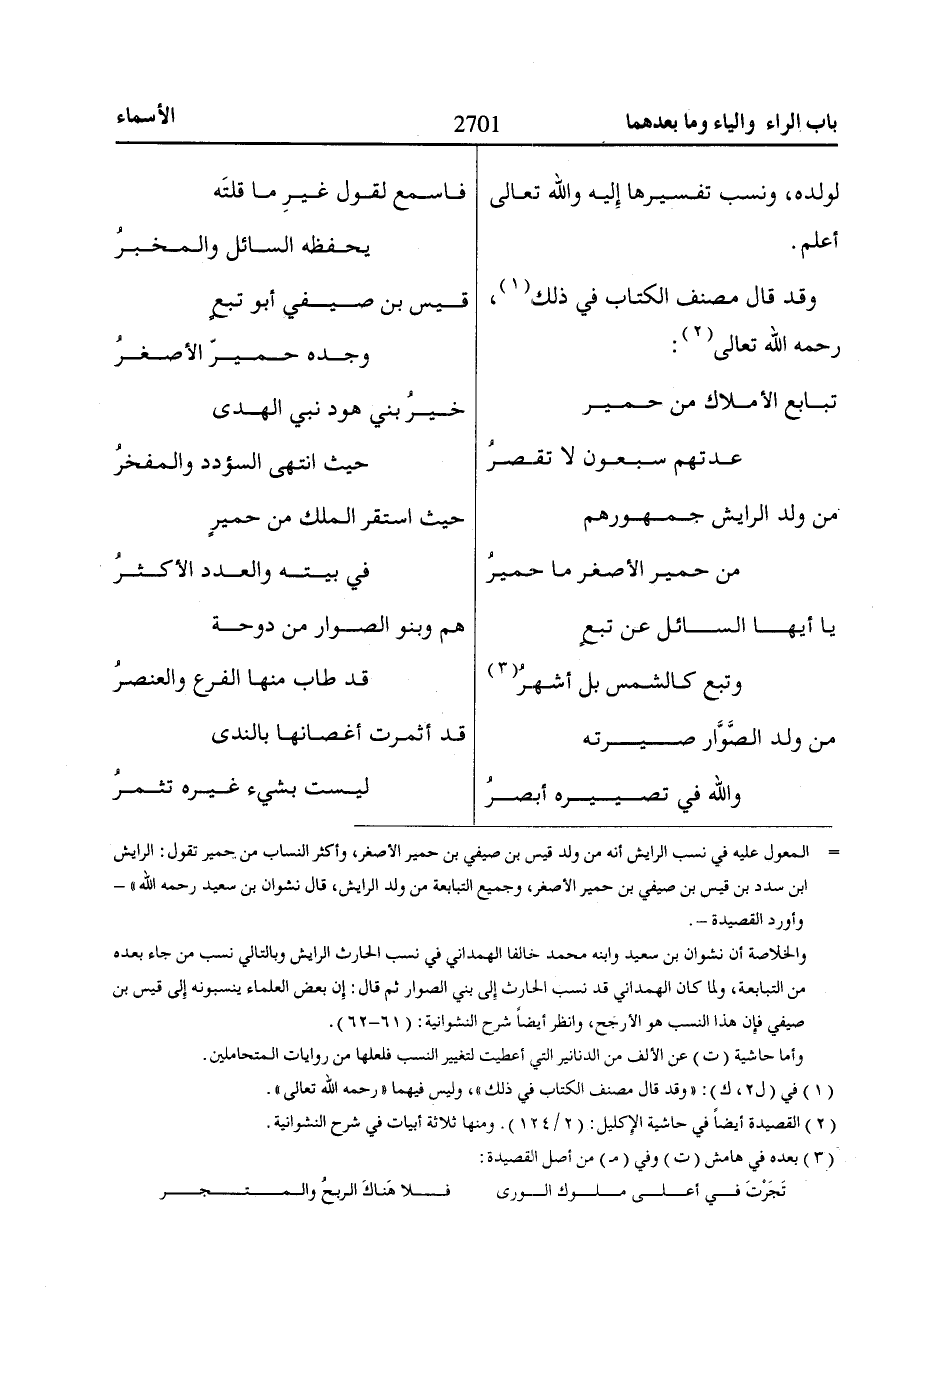 باب الراء والياء وما بعدهما
2701
الأسماء
لولده، ونسب تفسيرها إليه والله تعالى
أعلم.
وقد قال مصنف الكتاب في ذلك(١)،
رحمه الله تعالى(٢):
تبابع الأملاك من حمير
عدتهم سبعون لا تقصرُ
من ولد الرايش جمهورهم
من حمير الأصغر ما حميرُ
يا أيها السائل عن تبعٍ
وتبع كالشمس بل أشهرُ(٣)
من ولد الصَّوَّار صيرته
والله في تصييره أبصرُ
فاسمع لقول غيرِ ما قلتَه
يحفظه السائل والمخبرُ
قيس بن صيفي أبو تبعٍ
وجده حميرّ الأصغرُ
خيرُ بني هود نبي الهدى
حيث انتهى السؤدد والمفخرُ
حيث استقر الملك من حميرٍ
في بيته والعدد الأكثرُ
هم وبنو الصوار من دوحة
قد طاب منها الفرع والعنصرُ
قد أثمرت أغصانها بالندى
ليست بشيء غيره تثمرُ
= المعول عليه في نسب الرايش أنه من ولد قيس بن صيفي بن حمير الأصغر، وأكثر النساب من حمير تقول: الرايش
ابن سدد بن قيس بن صيفي بن حمير الأصغر، وجميع التبابعة من ولد الرايش، قال نشوان بن سعيد رحمه الله» –
وأورد القصيدة –.
والخلاصة أن نشوان بن سعيد وابنه محمد خالفا الهمداني في نسب الحارث الرايش وبالتالي نسب من جاء بعده
من التبابعة، ولما كان الهمداني قد نسب الحارث إلى بني الصوار ثم قال: إن بعض العلماء ينسبونه إلى قيس بن
صيفي فإن هذا النسب هو الأرجح، وانظر أيضاً شرح النشوانية: (٦١–٦٢).
وأما حاشية (ت) عن الألف من الدنانير التي أعطيت لتغيير النسب فلعلها من روايات المتحاملين.
(١) في (ل٢، ك): «وقد قال مصنف الكتاب في ذلك»، وليس فيهما «رحمه الله تعالى».
(٢) القصيدة أيضاً في حاشية الإكليل: (٢/ ١٢٤). ومنها ثلاثة أبيات في شرح النشوانية.
(٣) بعده في هامش (ت) وفي (م) من أصل القصيدة:
تَجَرْتَ في أعلى ملوك الورى فلا هَناكَ الربحُ والمتجر